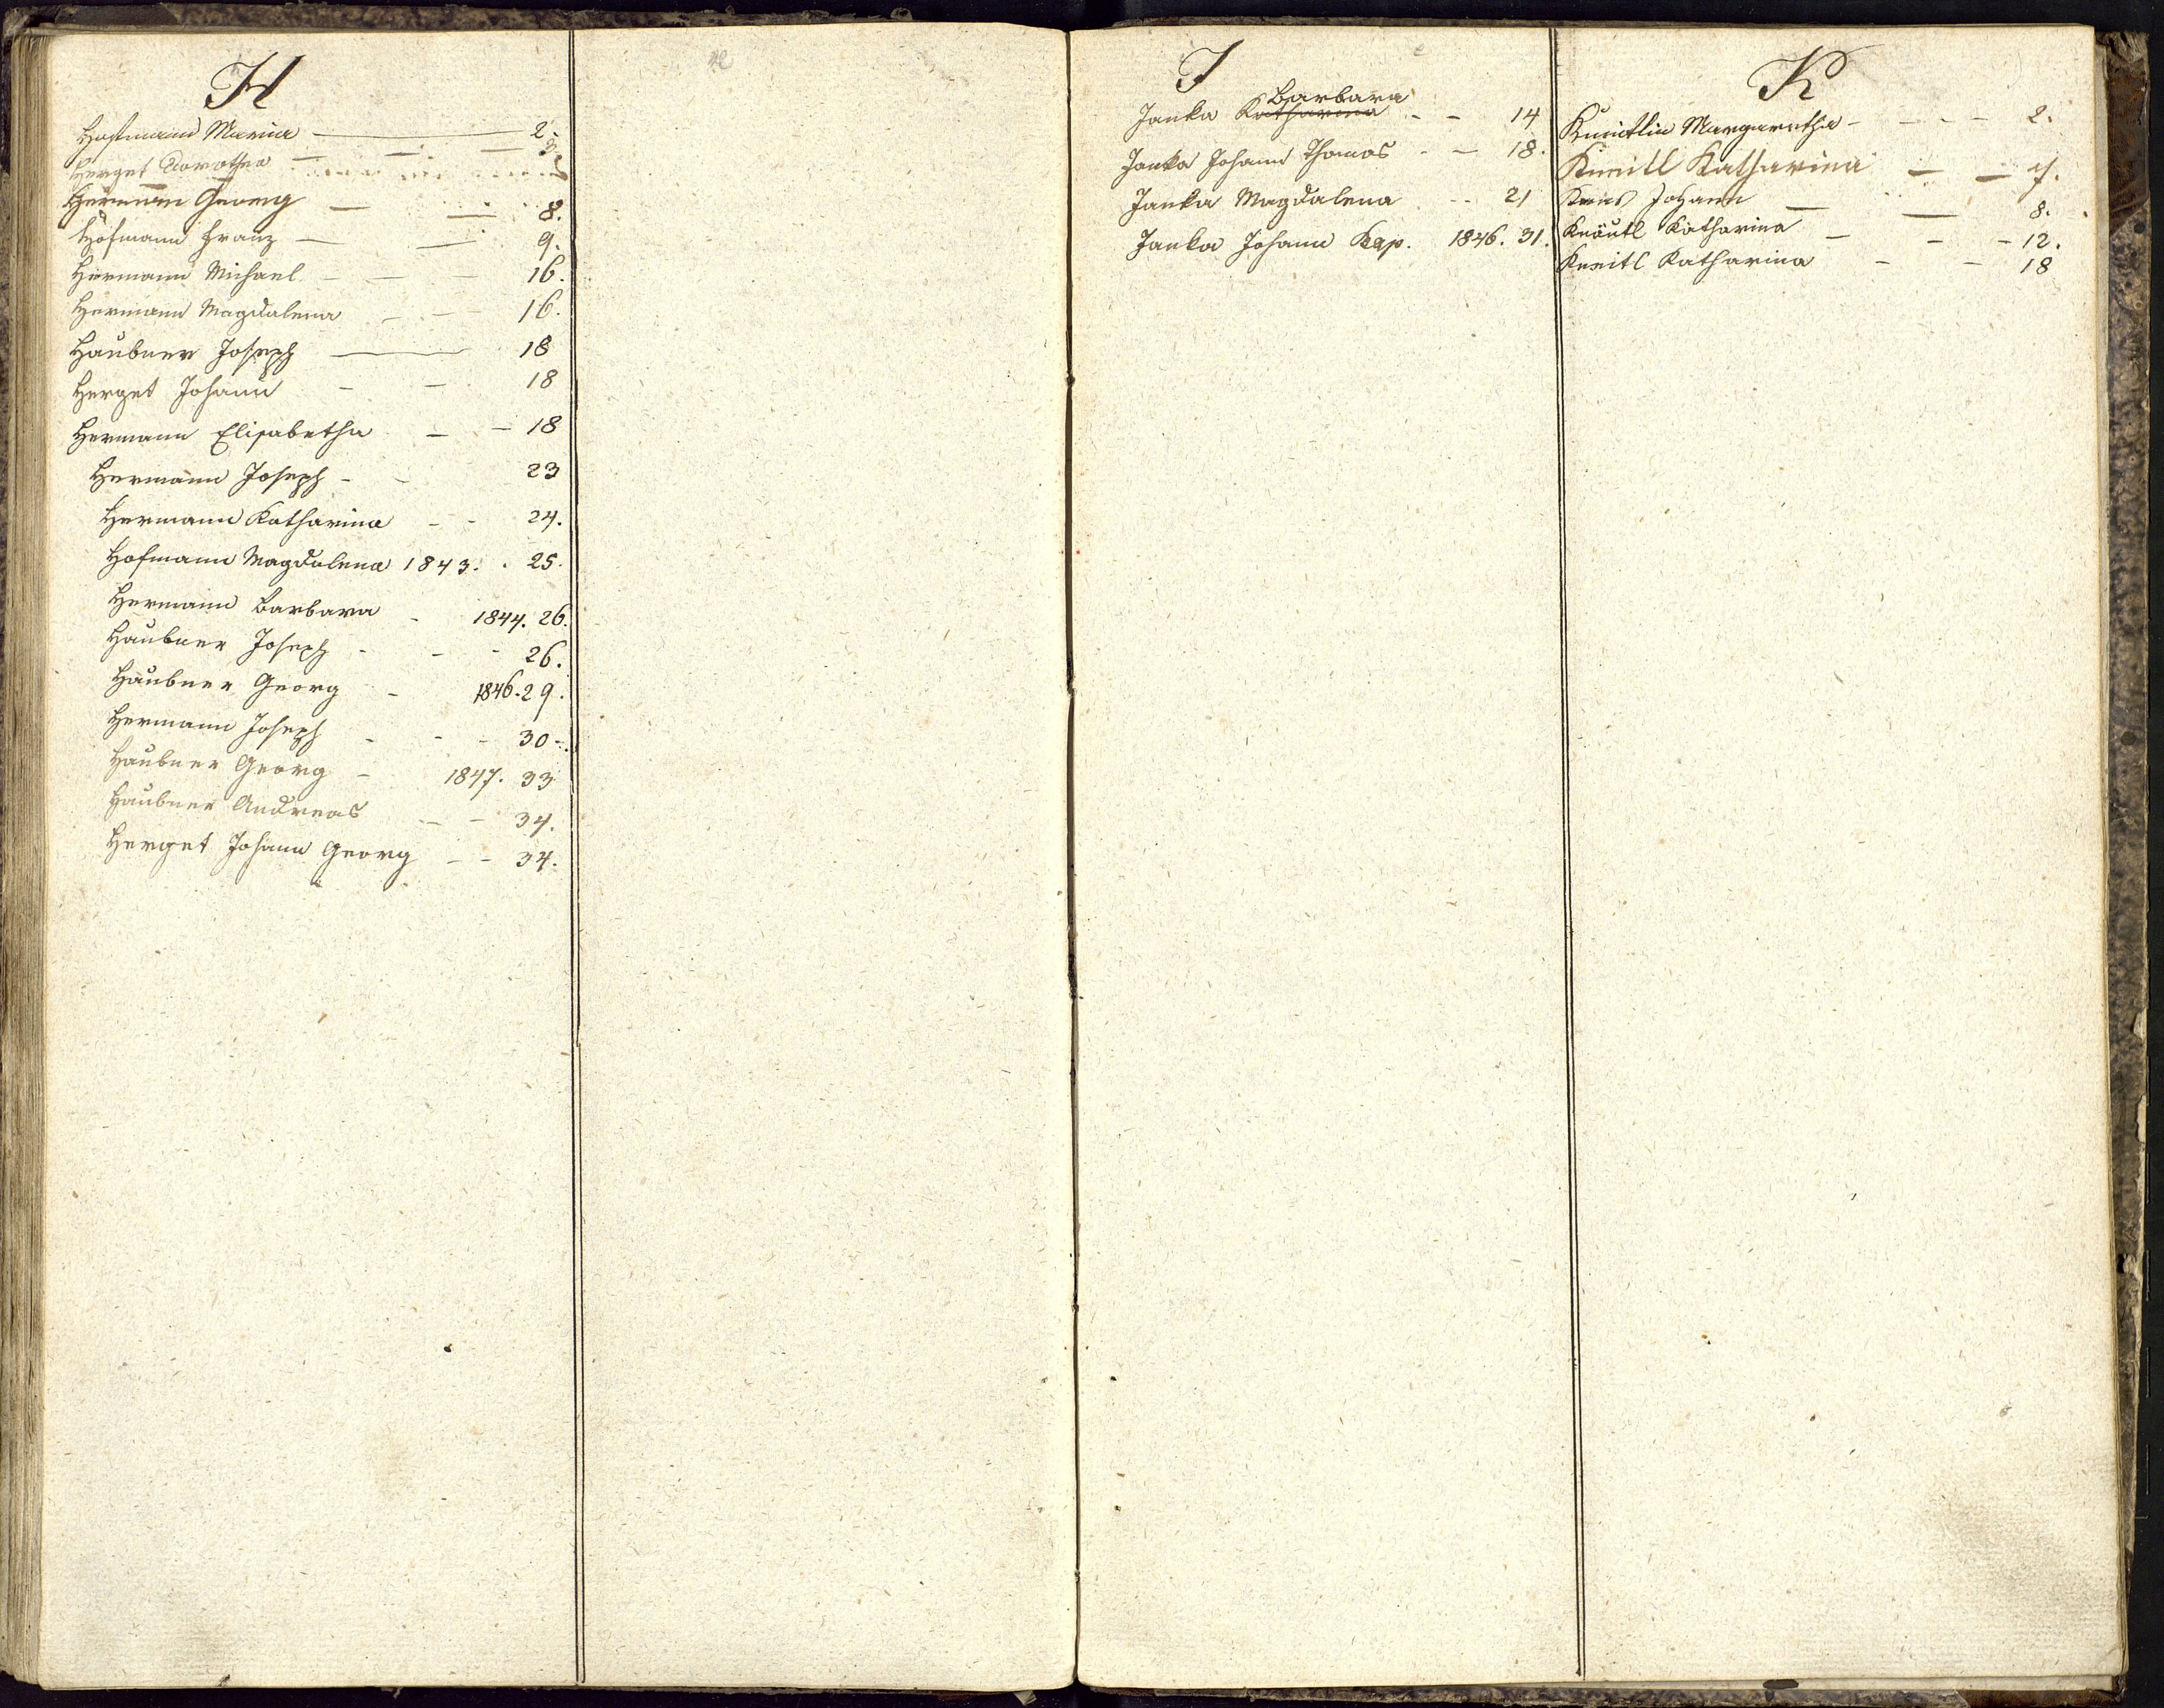 H
Hofmann Maria 2.
Herget Dorothea 3.
Hermann Georg 8.
Hofmann Franz 9.
Hermann Michael 16.
Hermann Magdalena 16.
Haubner Joseph 18
Herget Johann 18
Hermann Elisabetha 18
Hermann Joseph 23
Hermann Katharina 24.
Hofmann Magdalena 1843. 25.
Hermann Barbara 1844. 26.
Haubner Joseph 26.
Haubner Georg 1846. 29.
Hermann Joseph 30.
Haubner Georg 1847. 33
Haubner Andreas 34.
Herget Johann Georg 34.
J
Barbara
Janka Katharina 14
Janka Johann Thomas 18.
Janka Magdalena 21
Janka Johann Kap. 1846. 31.
K
Margaretha 2.
Kneitl Katharina 7.
Johann 8.
Kräutl Katharina 12.
Kneitl Katharina 18